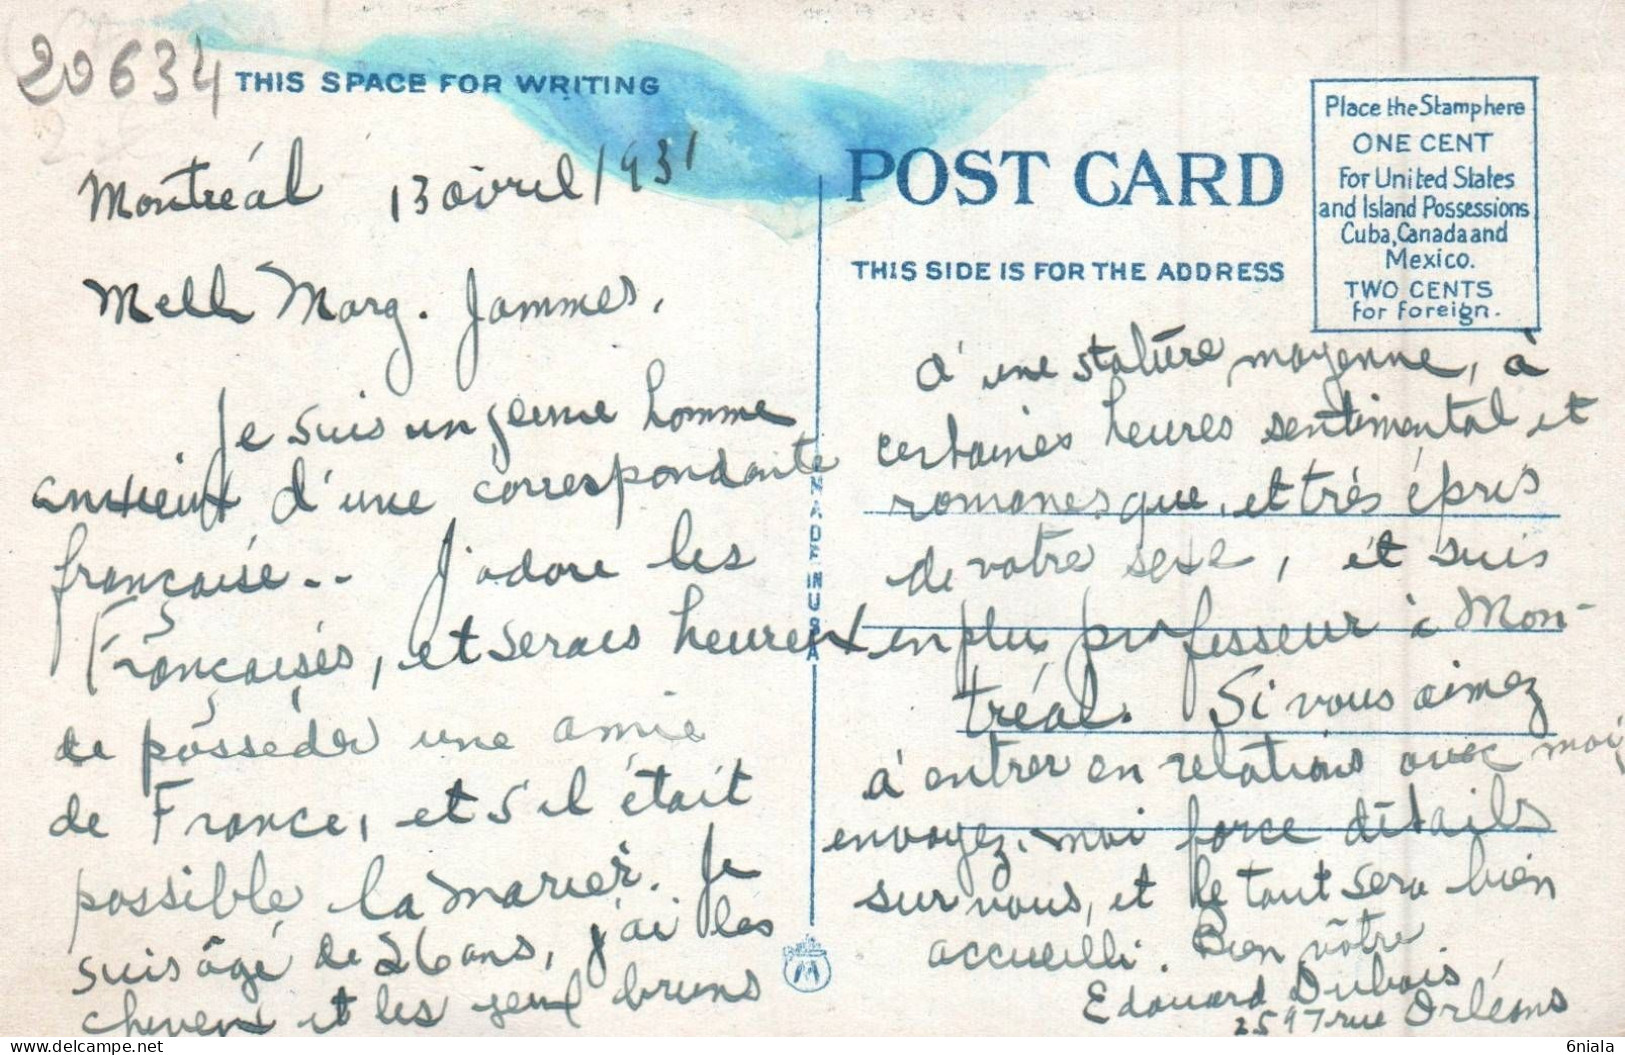 20634
THIS SPACE FOR WRITING
Montréal 13 avril 1931
Melle Marg. Jammes,
Je suis un jeune homme
anxieux d'une correspondante
française.. J'adore les
Françaises, et serais heureux
de posséder une amie
de France, et s'il était
possible la marier. Je
suis âgé de 26 ans, j'ai les
cheveux et les yeux bruns
MADE IN USA
POST CARD
THIS SIDE IS FOR THE ADDRESS
Place the Stamp here
ONE CENT
For United States
and Island Possessions
Cuba, Canada and
Mexico.
TWO CENTS
for Foreign.
d'une stature moyenne, à
certaines heures sentimental et
romanesque, et très épris
de votre sexe, et suis
en plus professeur à Mon-
tréal. Si vous aimez
à entrer en relations avec moi,
envoyez-moi force détails
sur vous, et le tout sera bien
accueilli. Bien vôtre.
Edouard Dubois,
2597 rue Orléans
6niala